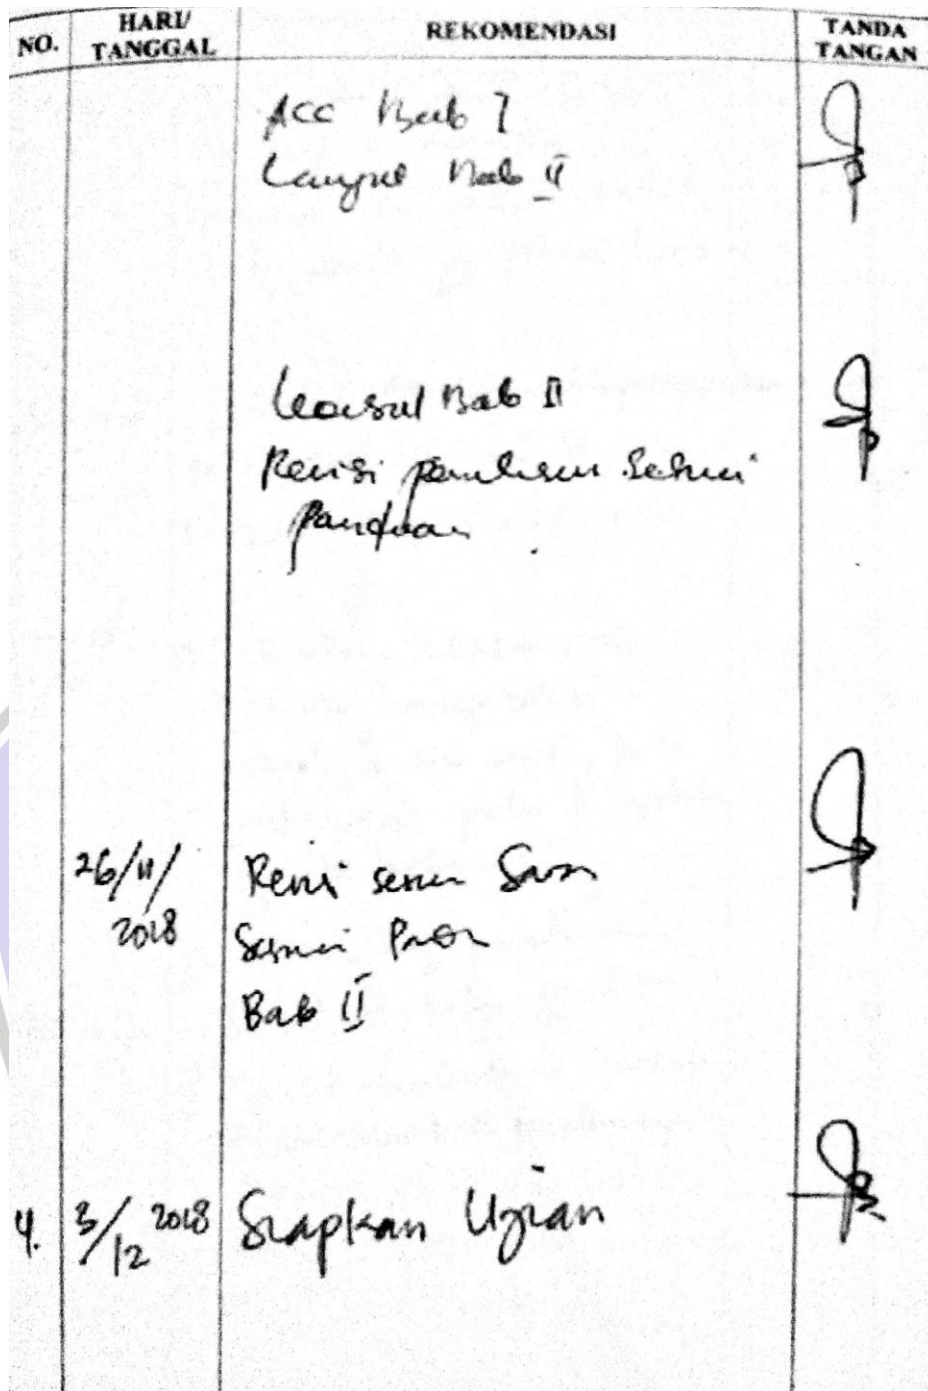 NO.
HARI/
TANGGAL
REKOMENDASI
TANDA
TANGAN
ACC Bab I
Lanjut Bab II
Konsul Bab II
Revisi penulisan sesuai
panduan
26/11/
2018
Revisi sesuai Saran
Sesuai
Bab II
4.
3/12 2018
Siapkan Ujian